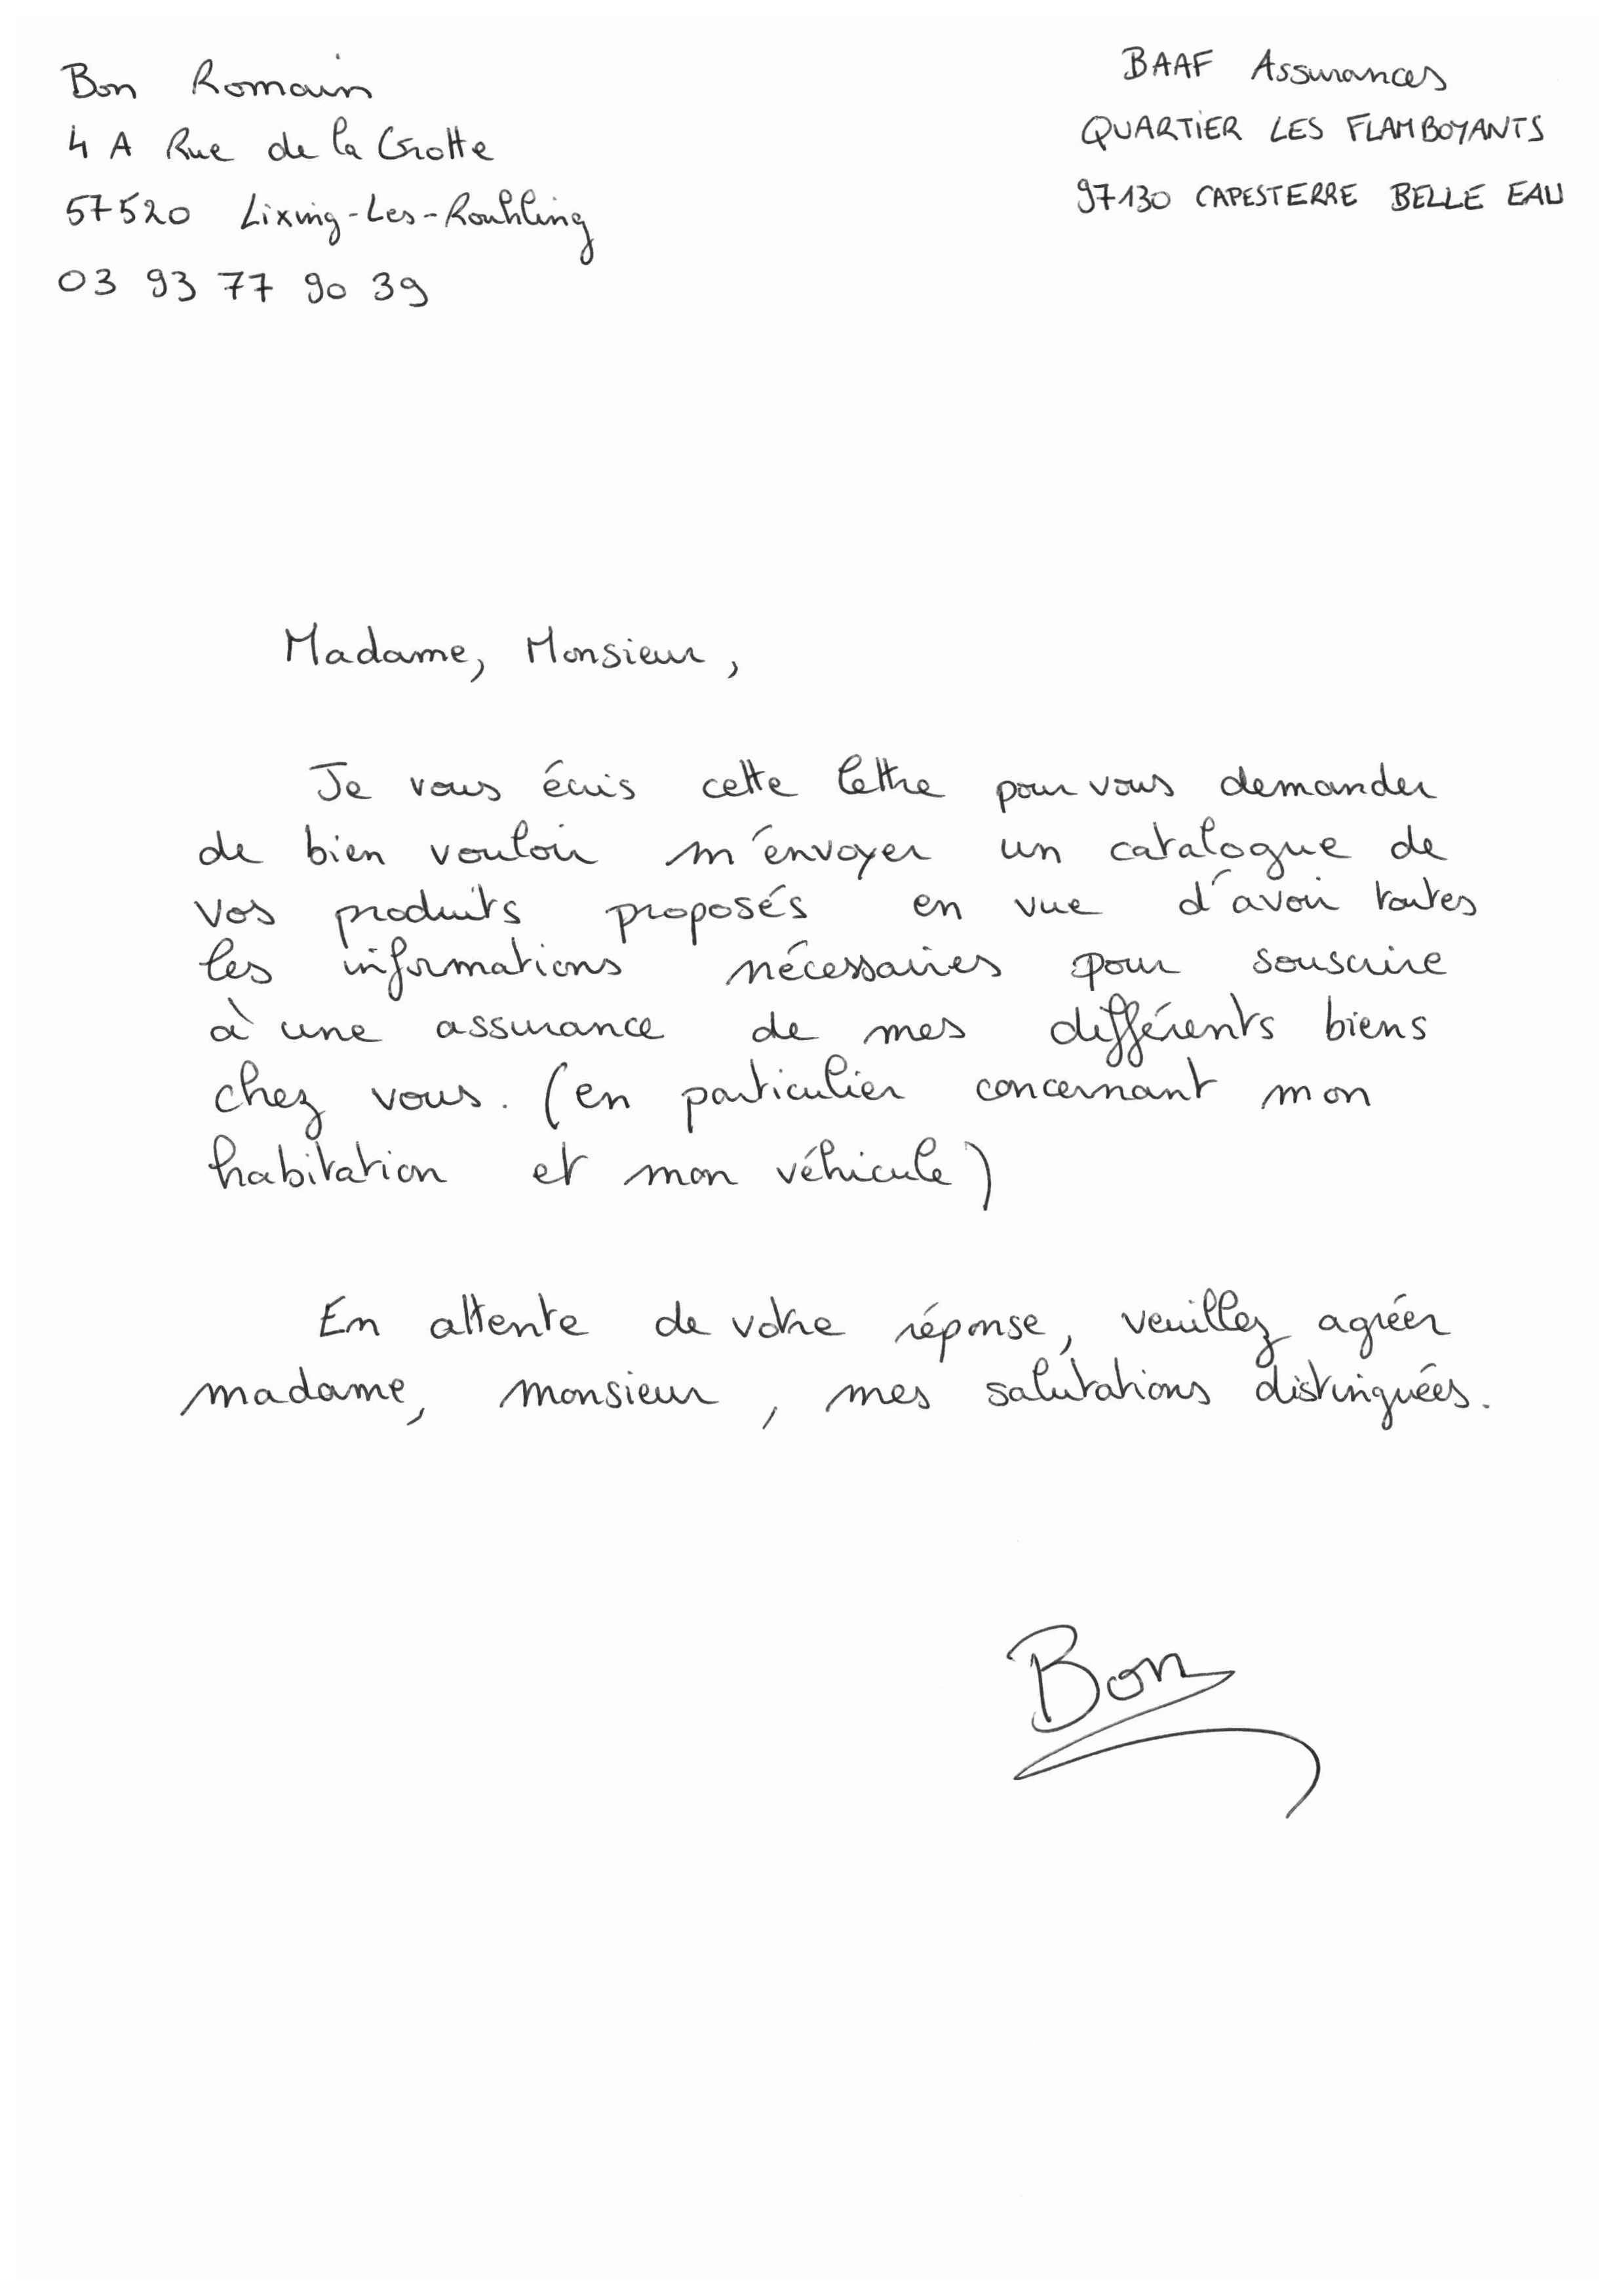 Bon Romain
4 A Rue de la Grotte
57520 Lixing-Les-Rouhling
03 93 77 90 39
BAAF Assurances
QUARTIER LES FLAMBOYANTS
97130 CAPESTERRE BELLE EAU
Madame, Monsieur,
Je vous écris cette lettre pour vous demander
de bien vouloir m'envoyer un catalogue de
vos produits proposés en vue d'avoir toutes
les informations nécessaires pour souscrire
à une assurance de mes différents biens
chez vous. (en particulier concernant mon
habitation et mon véhicule)
En attente de votre réponse, veuillez agréer
madame, monsieur, mes salutations distinguées.
Bon